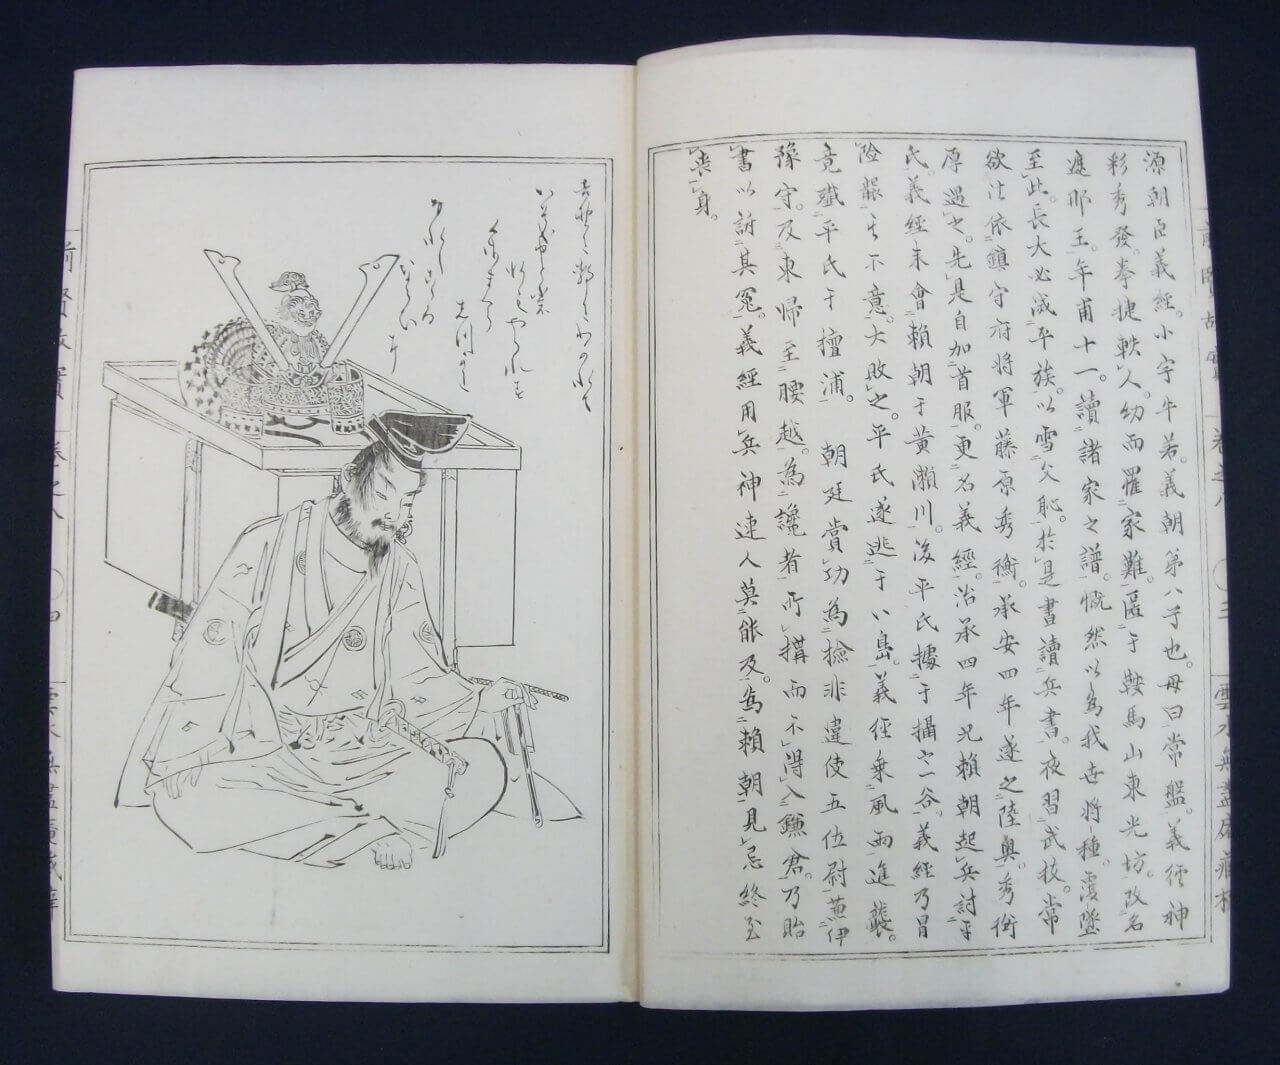 源朝臣義經。小字牛若。義朝第八子也。母曰常盤。義經神
彩秀發。拳捷軼人。幼而罹家難。匿于鞍馬山東光坊。改名
遮那王。年甫十一。讀諸家之譜。慨然以為我世將種。湮墜
至此。長大必滅平族。以雪父恥。於是書讀兵書。夜習武技。常
欲往依鎮守府將軍藤原秀衡。承安四年遂之陸奥。秀衡
厚遇之。先是自加首服。更名義經。治承四年兄賴朝起兵討平
氏。義經来會賴朝于黄瀬川。後平氏據于攝之一谷。義經乃冒
險襲其不意。大敗之。平氏遂逃于八島。義經乗風雨進襲。
竟殲平氏于壇浦。 朝廷賞功為檢非違使五位尉兼伊
豫守。及東歸至腰越。為讒者所搆而不得入鎌倉。乃貽
書以訴其冤。義經用兵神速人莫能及。為賴朝見忌終至
喪身。
前賢故實 卷之八 三
雲水無盡庵藏梓
前賢故實 卷之八 四
雲水無盡庵藏梓